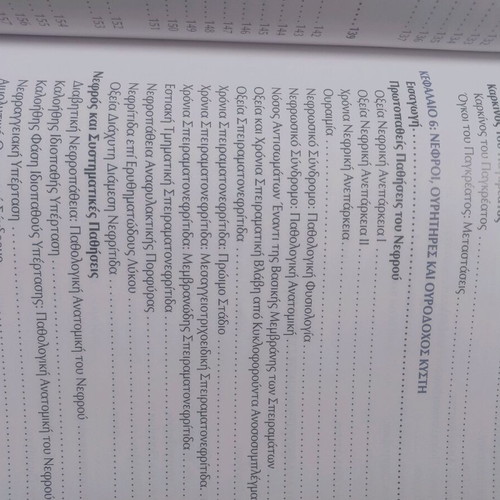 Καρκίνος του Παγκρέατος
Όγκοι του Παγκρέατος: Μεταστάσεις
ΚΕΦΑΛΑΙΟ 6: ΝΕΦΡΟΙ, ΟΥΡΗΤΗΡΕΣ ΚΑΙ ΟΥΡΟΔΟΧΟΣ ΚΥΣΤΗ
Εισαγωγή
Πρωτοπαθείς Παθήσεις του Νεφρού
Οξεία Νεφρική Ανεπάρκεια Ι
Οξεία Νεφρική Ανεπάρκεια ΙΙ
Χρόνια Νεφρική Ανεπάρκεια
Ουραιμία
Νεφρωσικό Σύνδρομο: Παθολογική Φυσιολογία
Νεφρωσικό Σύνδρομο: Παθολογική Ανατομική
Νόσος Αντισωμάτων Έναντι της Βασικής Μεμβράνης των Σπειραμάτων
Οξεία και Χρόνια Σπειραματική Βλάβη από Κυκλοφορούντα Ανοσοσυμπλέγμα
Οξεία Σπειραματονεφρίτιδα
Χρόνια Σπειραματονεφρίτιδα: Πρώιμο Στάδιο
Χρόνια Σπειραματονεφρίτιδα: Μεσαγγειοτριχοειδική Σπειραματονεφρίτιδα
Χρόνια Σπειραματονεφρίτιδα: Μεμβρανώδης Σπειραματονεφρίτιδα
Εστιακή Τμηματική Σπειραματονεφρίτιδα
Νεφροπάθεια Αναφυλακτικής Πορφύρας
Νεφρίτιδα επί Ερυθηματώδους Λύκου
Οξεία Διάχυτη Διάμεση Νεφρίτιδα
Νεφρός και Συστηματικές Παθήσεις
Διαβητική Νεφροπάθεια: Παθολογική Ανατομική του Νεφρού
Καλοήθης Ιδιοπαθής Υπέρταση
Καλοήθης Φάση Ιδιοπαθούς Υπέρτασης: Παθολογική Ανατομική του Νεφρού
Νεφραγγειακή Υπέρταση
139
141
142
143
144
145
146
147
148
149
149
150
151
152
153
154